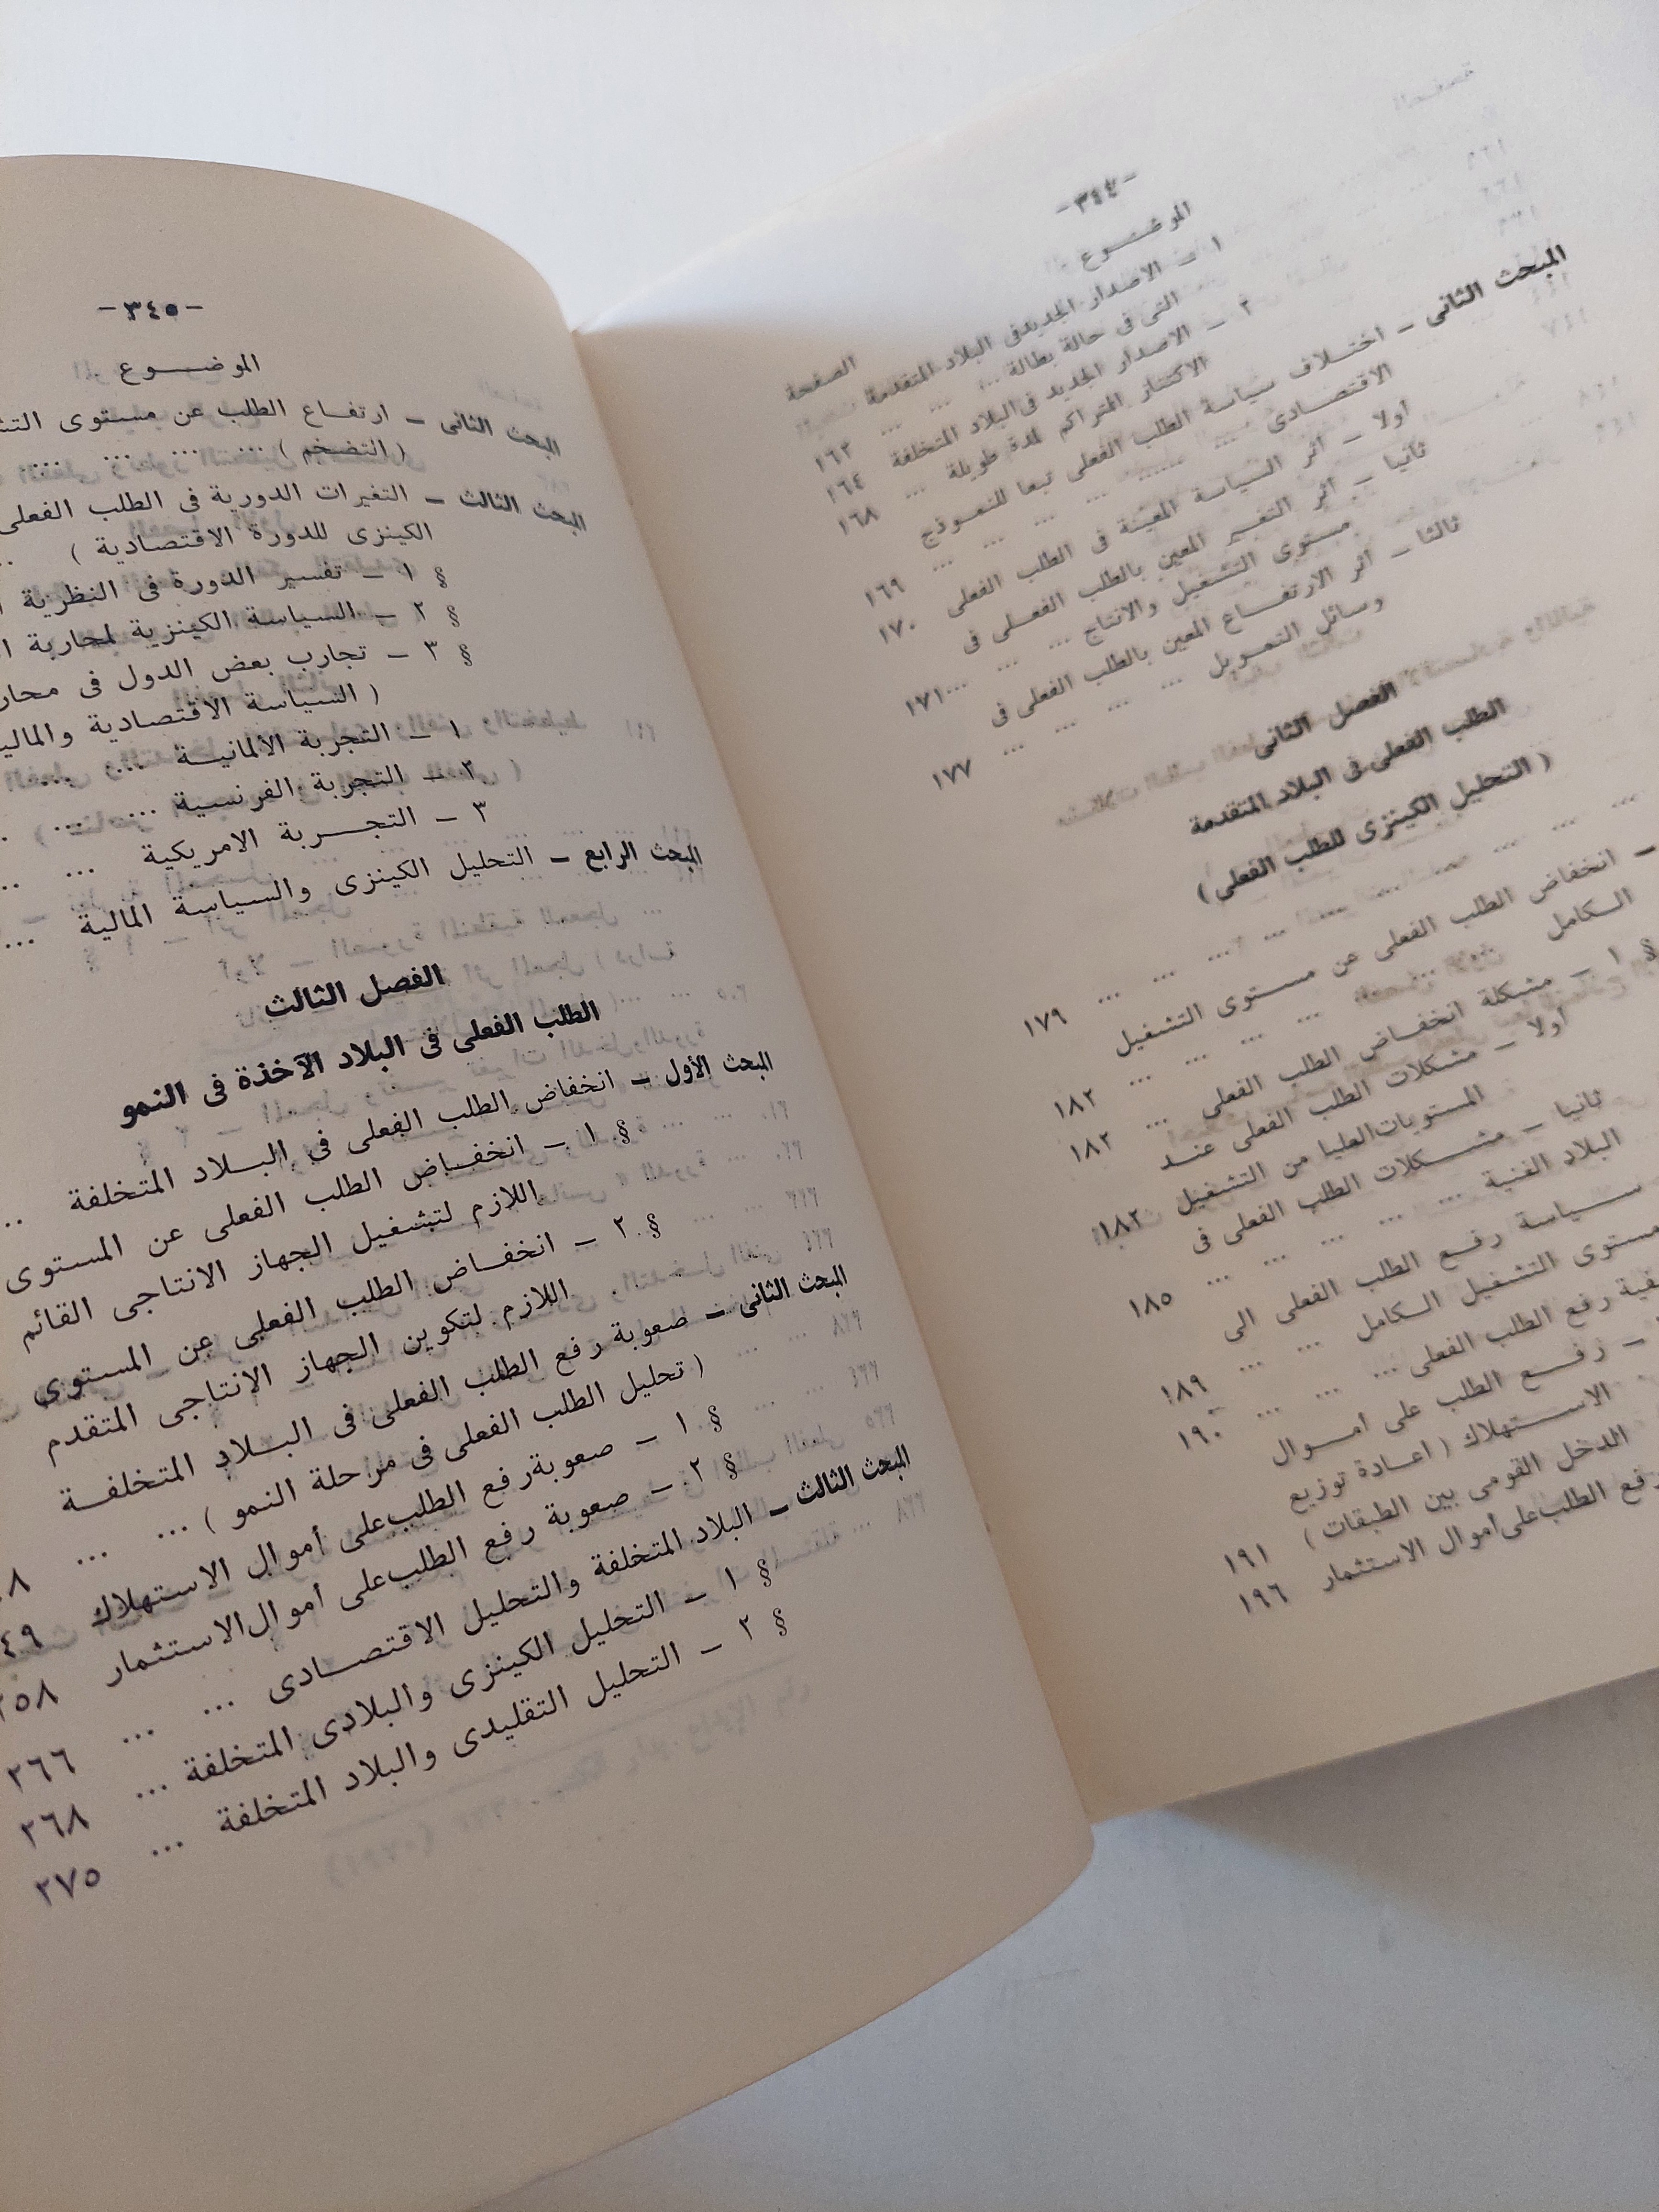 -٣٤٤-
الموضـــوع
الصفحة
١ - الاصدار الجديد فى البلاد المتقدمة
التى فى حالة بطالة ... ... ... ١٦٣
٢ - الاصدار الجديد فى البلاد المتخلفة ١٦٤
الاكتناز المتراكم لمدة طويلة ... ١٦٨
المبحث الثانى - اختــلاف سياسة الطلب الفعلى تبعا للنمــوذج
الاقتصــادى ... ... ... ... ... ١٦٩
أولا - أثر السياسة المعينة فى الطلب الفعلى ١٧٠
ثانيا - أثر التغــير المعين بالطلب الفعــلى فى
مستوى التشغيل والانتاج ... ... ... ١٧١
ثالثا - أثر الارتفــاع المعين بالطلب الفعلى فى
وسائل التمــويل ... ... ... ... ١٧٧
الفصل الثانى
الطلب الفعلى فى البلاد المتقدمة
( التحليل الكينزى للطلب الفعلى )
... ... ... ... ... ... ١٧٩
- انخفاض الطلب الفعلى عن مستوى التشغيل
الــكامل ... ... ... ... ... ١٨٢
§ ١ - مشكلة انخفــاض الطلب الفعلى ... ١٨٢
أولا - مشكلات الطلب الفعلى عنــد
المستويات العليا من التشغيل ١٨٢
ثانيا - مشــكلات الطلب الفعلى فى
البلاد الغنية ... ... ... ... ... ١٨٥
سياسة رفــع الطلب الفعلى الى
مستوى التشغيل الــكامل ... ... ... ١٨٩
رفع الطلب الفعلى ... ... ... ١٩٠
- رفــع الطلب على أمــوال
الاســتهلاك ( اعــادة توزيع
الدخل القومى بين الطبقات ) ١٩١
رفع الطلب على أموال الاستثمار ١٩٦
-٣٤٥-
الموضـــوع
المبحث الثانى - ارتفــاع الطلب عن مستوى
( التضخم ) ... ... ... ...
المبحث الثالث - التغيرات الدورية فى الطلب الفعلى
الكينزى للدورة الاقتصادية )
§ ١ - تفسير الدورة فى النظرية
§ ٢ - السياسة الكينزية لمحاربة
§ ٣ - تجارب بعض الدول فى
( السياسة الاقتصادية
١ - التجربة الألمانيــة ... ...
٢ - التجربة الفرنسية ... ...
٣ - التجــربة الامريكية ... ...
المبحث الرابع - التحليل الكينزى والسياسة المالية ...
الفصل الثالث
الطلب الفعلى فى البلاد الآخذة فى النمو
المبحث الأول - انخفاض الطلب الفعلى فى البــلاد المتخلفة
§ ١ - انخفــاض الطلب الفعلى عن المستوى
اللازم لتشغيل الجهاز الانتاجى القائم
§ ٢ - انخفــاض الطلب الفعلى عن المستوى
اللازم لتكوين الجهاز الانتاجى المتقدم
المبحث الثانى - صعوبة رفع الطلب الفعلى فى البــلاد المتخلفــة
( تحليل الطلب الفعلى فى مرحلة النمو ) ... ...
§ ١ - صعوبة رفع الطلب على أموال الاستهلاك
§ ٢ - صعوبة رفع الطلب على أموال الاستثمار
المبحث الثالث - البلاد المتخلفة والتحليل الاقتصــادى ... ... ٢٦٦
§ ١ - التحليل الكينزى والبلادى المتخلفة ... ٢٦٨
§ ٢ - التحليل التقليدى والبلاد المتخلفة ... ٢٧٥